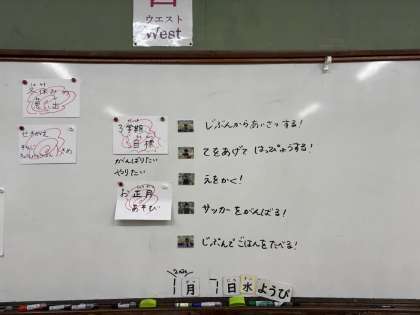 西
ウエスト
West
冬休みの
思い出
3学期
目標
がんばりたい
やりたい
お正月
あそび
じぶんからあいさつする！
てをあげて はっぴょうする！
えをかく！
サッカーをがんばる！
じぶんでごはんをたべる！
1月 7日 水 ようび